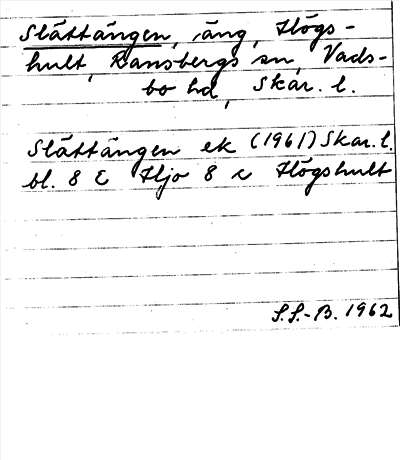 Slättängen, äng, Högs-
hult, Ransbergs sn, Vads-
bo hd, Skar. l.
Slättängen ek (1961) Skar. l.
bl. 8 E Hjo 8 c Högshult
S.S.-B. 1962